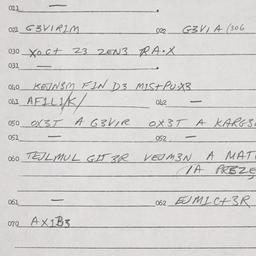 011 —
021 G3VIRIM 022 G3VIA (306
030 XOCT 23 ZEN3 RA.X
031 —
040 KEJNSM FIN D3 MISTPUX3
041 AFILIK/ 042 —
050 OX3T A G3VIR OX3T A KARG3
051 — 052 —
060 TEJLMUL GIT3R VEJM3N A MAT
IA PREZE
061 — 062 EJMICT3R
070 AXIB3